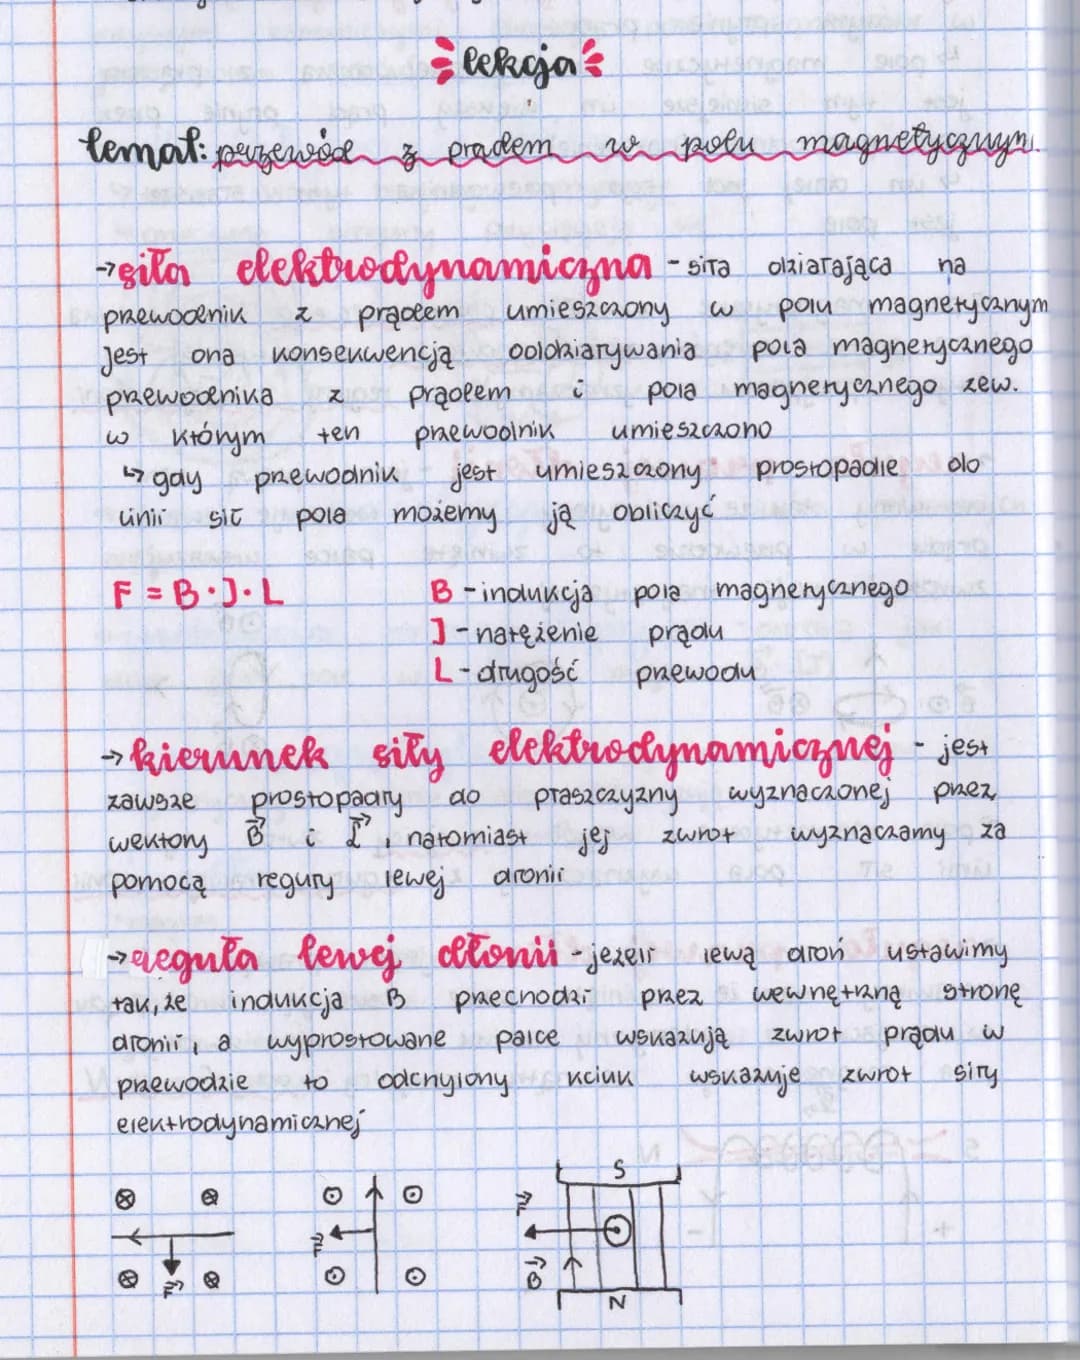 lekcja
temat: przewód z prądem w polu magnetycznym.
→siła elektrodynamiczna - siła działająca na
przewodnik z prądem umieszczony w polu magnetycznym
Jest ona konsekwencją oddziaływania pola magnetycznego
przewodnika z prądem i pola magnetycznego zew.
w którym ten przewodnik umieszczono
↳ gdy przewodnik jest umieszczony prostopadle do
linii sił pola możemy ją obliczyć
F = B · J · L
B - indukcja pola magnetycznego
J - natężenie prądu
L - długość przewodu
→kierunek siły elektrodynamicznej - jest
zawsze prostopadły do płaszczyzny wyznaczonej przez
wektory B⃗ i L⃗, natomiast jej zwrot wyznaczamy za
pomocą reguły lewej dłonii
→reguła lewej dłonii - jeżeli lewą dłoń ustawimy
tak, że indukcja B przechodzi przez wewnętrzną stronę
dłonii, a wyprostowane palce wskazują zwrot prądu w
przewodzie to odchylony kciuk wskazuje zwrot siły
elektrodynamicznej
F⃗
F⃗
S
F⃗
B⃗
N